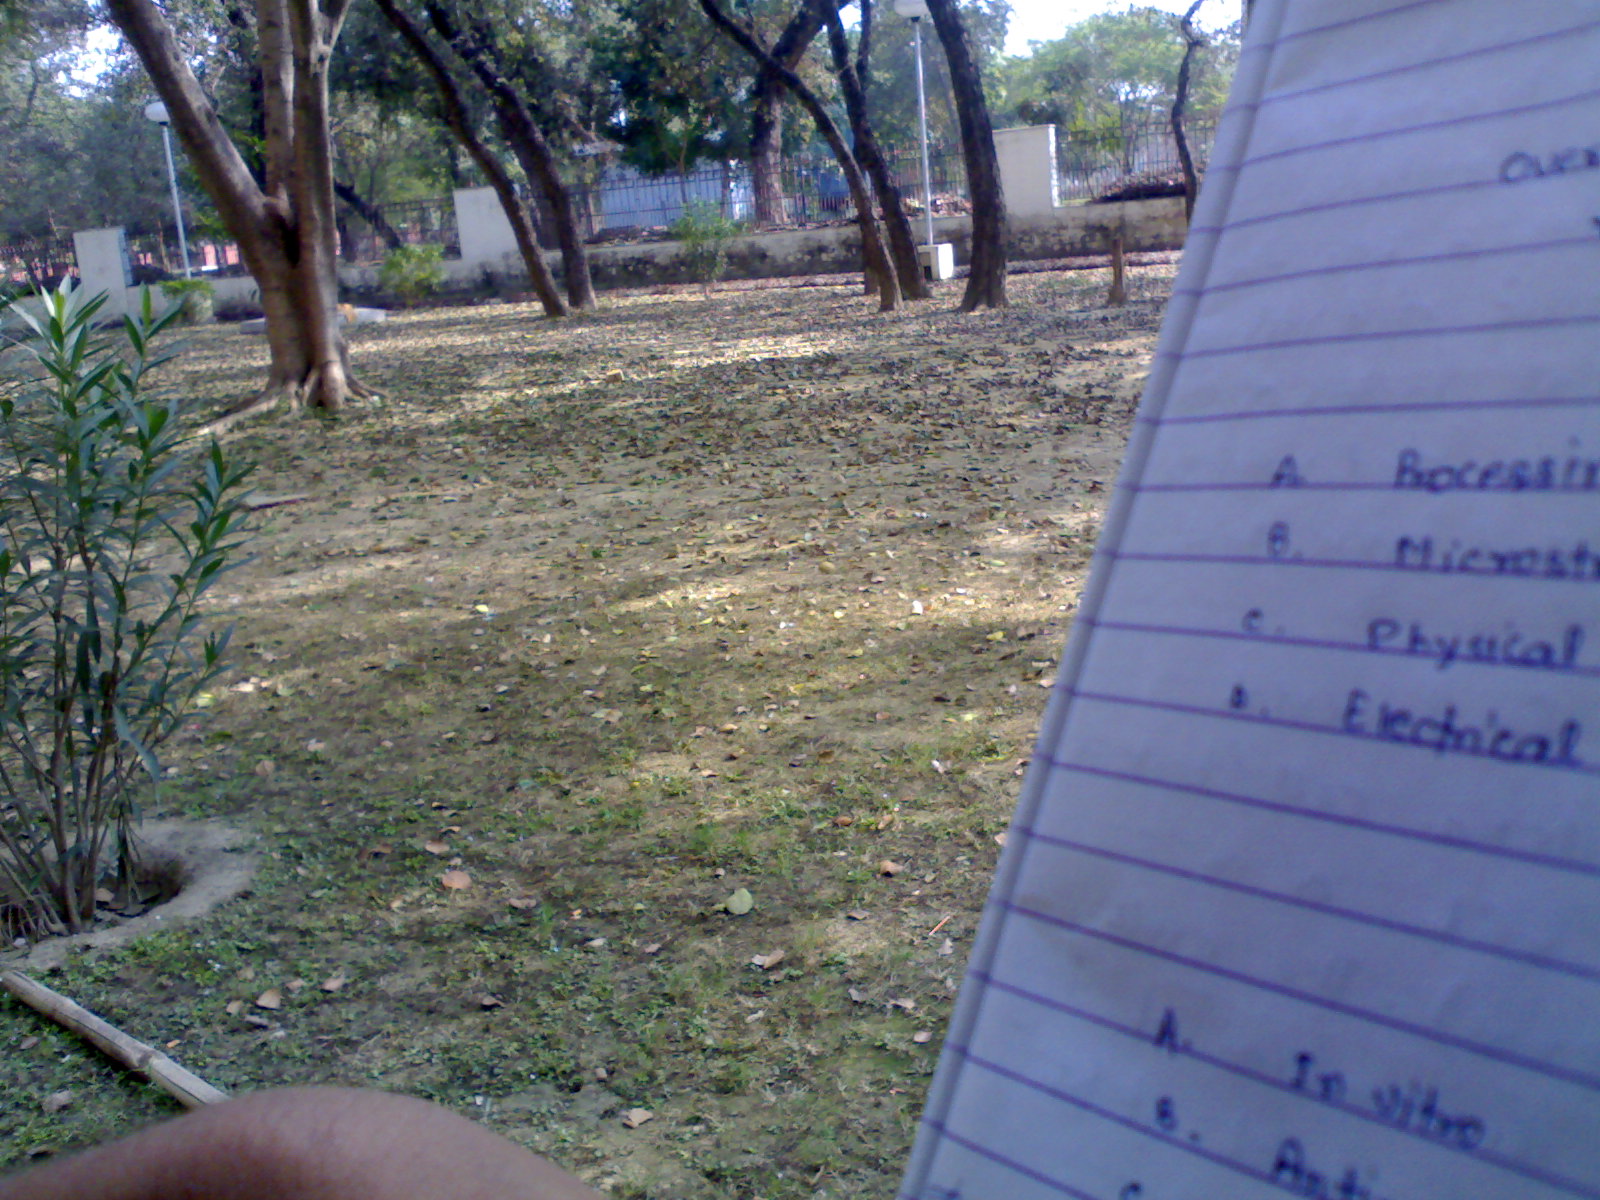 Over
A. Processin
B. Microstr
C. Physical
D. Electrical
A. In vitro
B. Anti
C